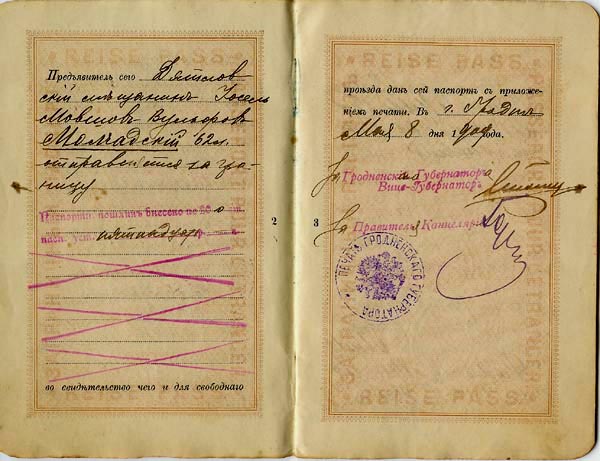 REISE PASS
Предъявитель сего Дятлов-
скій мѣщанинъ Іосель
Мовшовъ Вульфовъ
Молчадскій 62 л.
отправляется за гра-
ницу
Паспортн. пошлин. внесено по
пасп. уст. пятнадцать
во свидѣтельство чего и для свободнаго
2
REISE PASS
REISE PASS
проѣзда данъ сей паспортъ съ приложе-
ніемъ печати. Въ г. Гродна
Мая 8 дня 1909 года.
За Гродненскаго Губернатора
Вице-Губернаторъ
3
За Правителя Канцеляріи
ПЕЧАТЬ ГРОДНЕНСКАГО ГУБЕРНАТОРА
REISE PASS